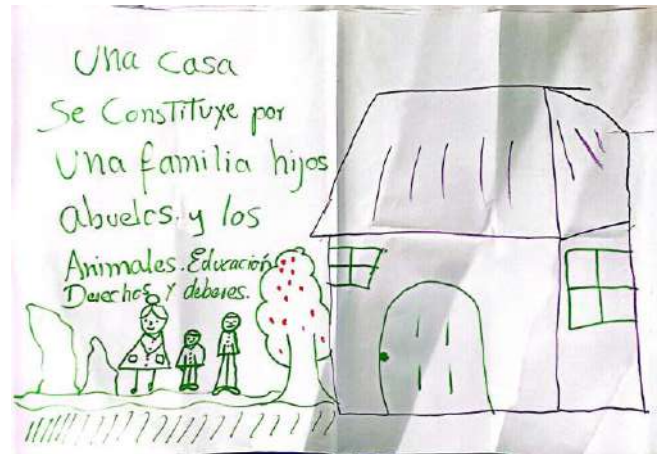 Una Casa
Se Constituye por
Una familia hijos
abuelos y los
Animales. Educación
Derechos y deberes.